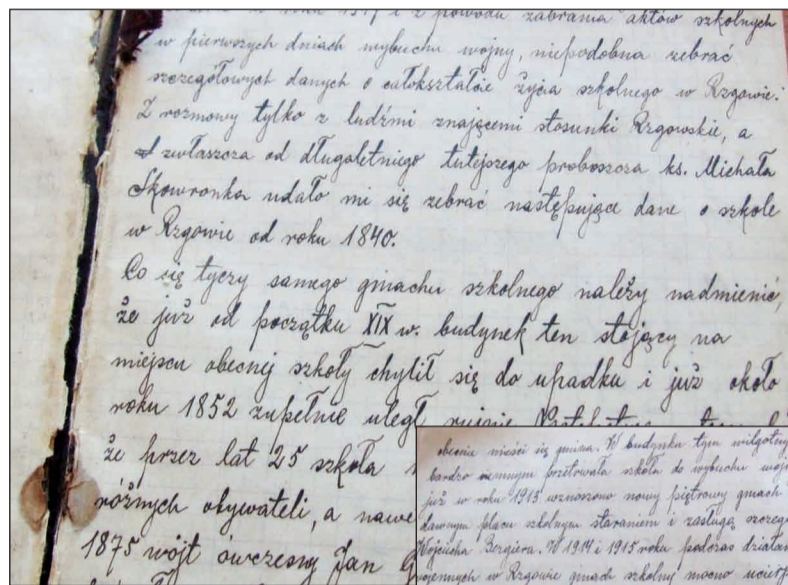 do roku 1917 i z powodu zabrania aktów szkolnych
w pierwszych dniach wybuchu wojny, niepodobna zebrać
szczegółowych danych o całokształcie życia szkolnego w Rzgowie.
Z rozmowy tylko z ludźmi znającemi stosunki Rzgowskie, a
zwłaszcza od długoletniego tutejszego proboszcza ks. Michała
Skowronka udało mi się zebrać następujące dane o szkole
w Rzgowie od roku 1840.
Co się tyczy samego gmachu szkolnego należy nadmienić,
że już od początku XIX w. budynek ten stojący na
miejscu obecnej szkoły chylił się do upadku i już około
roku 1852 zupełnie uległ ruinie
że przez lat 25 szkoła
różnych obywateli, a nawe
1875 wójt ówczesny Jan
obecnie mieści się gmina. W budynku tym wilgotny
bardzo ciemnym przetrwała szkoła do wybuchu woj
już w roku 1913 wznoszono nowy piętrowy gmach
dawnym placu szkolnym staraniem i zasługą szczegó
Wojciecha Bergiera. W 1914 i 1915 roku podczas działań
wojennych w Rzgowie gmach szkolny mocno ucierp